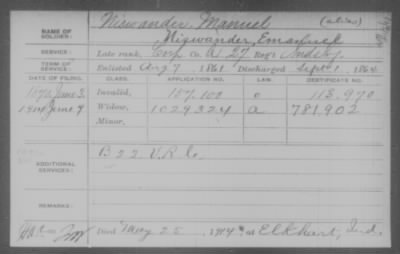 NAME OF SOLDIER: Niswander, Manuel (alias)
Niswander, Emanuel
SERVICE: Late rank, Corp Co. A, 27 Reg't Ind. Inf.
TERM OF SERVICE: Enlisted Aug 7, 1861 Discharged Sept 1, 1864
DATE OF FILING. CLASS. APPLICATION NO. LAW. CERTIFICATE NO.
June 3, Invalid, 157,102 113,970
1914 June 9 Widow, 1029324 a 781,902
Minor,
ADDITIONAL SERVICES: B 22 V.R.C.
REMARKS:
Died May 25, 1914, at Elkhart, Ind.